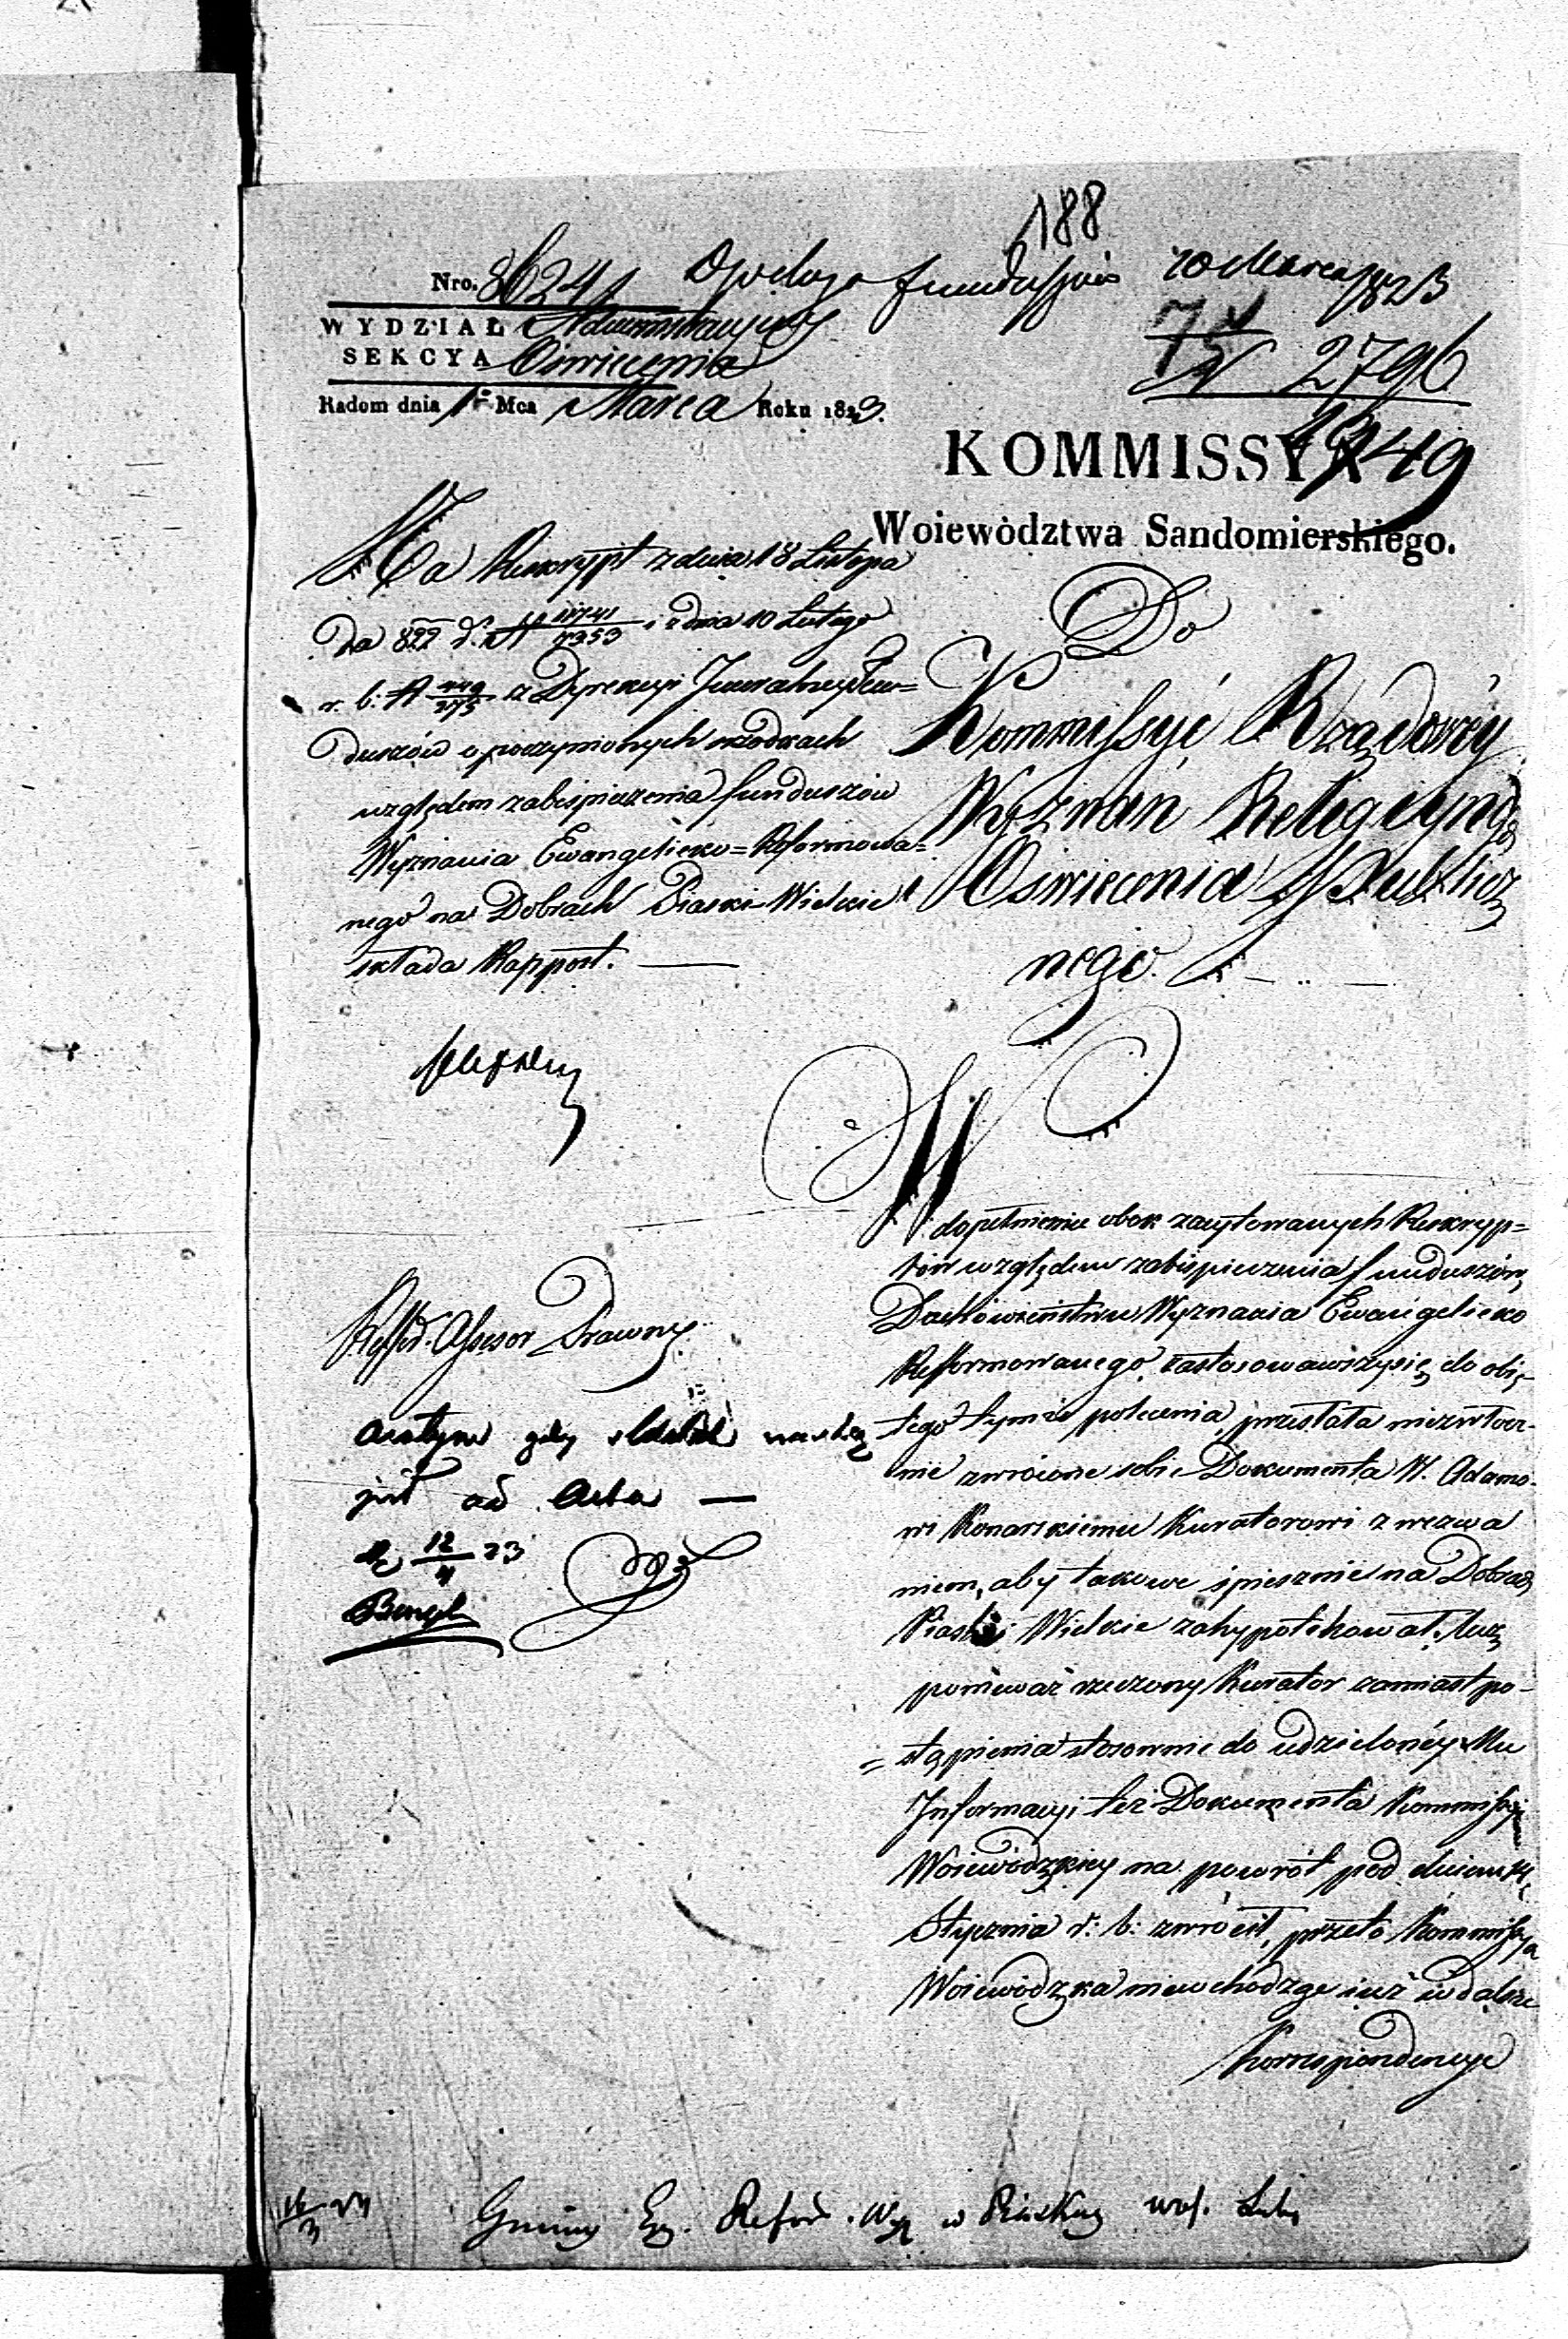 188
Nro. 8624
10 Marca 1823
WYDZIAŁ Administracyiny
SEKCYA Oświecenia
N 2796
Radom dnia 1 Mca Marca Roku 1823.
1349
KOMMISSYA
Woiewództwa Sandomierskiego.
Na Reskrypt z dnia 18 Listopa
da 822 d. N 11741/7353 i z dnia 10 Lutego
r. b. N 449/275 z Dyrekcyi Jeneralney Fun=
duszów o poczynionych krokach
względem zabespieczenia funduszów
Wyznania Ewangelicko=Reformowa=
nego na Dobrach Piaski Wielkie
składa Rapport. —
Do
Kommissyi Rządowéy
Wyznań Religiynych
Oświecenia Publicz
nego.
W dopełnieniu obok zacytowanych Reskryp=
tów względem zabespieczenia funduszów
Duchowieństwu Wyznania Ewangelicko
Reformowanego, zastosowawszy się do obię
tego tymże polecenia, przesłała niezwłocz-
nie zwrócone sobie Dokumenta W. Adamo-
wi Konarskiemu Kuratorowi z wezwa
niem, aby takowe śpiesznie na Dobrach
Piaski Wielkie zahypotekował, lecz
ponieważ rzeczony Kurator zamiast po-
=stąpienia stosownie do udzielonéy Mu
Informacyi też Dokumenta Kommissyi
Woiewódzkiey na powrót pod dniem 14
Stycznia r: b: zwrócił, przeto Kommissya
Woiewódzka niewchodząc iuż w dalsze
Korrespondencye
Refer. Assesor Prawny.
ad Acta —
12/4 23
Gminy Ew. Refor. Wyz w Piaskach woj. Lub.